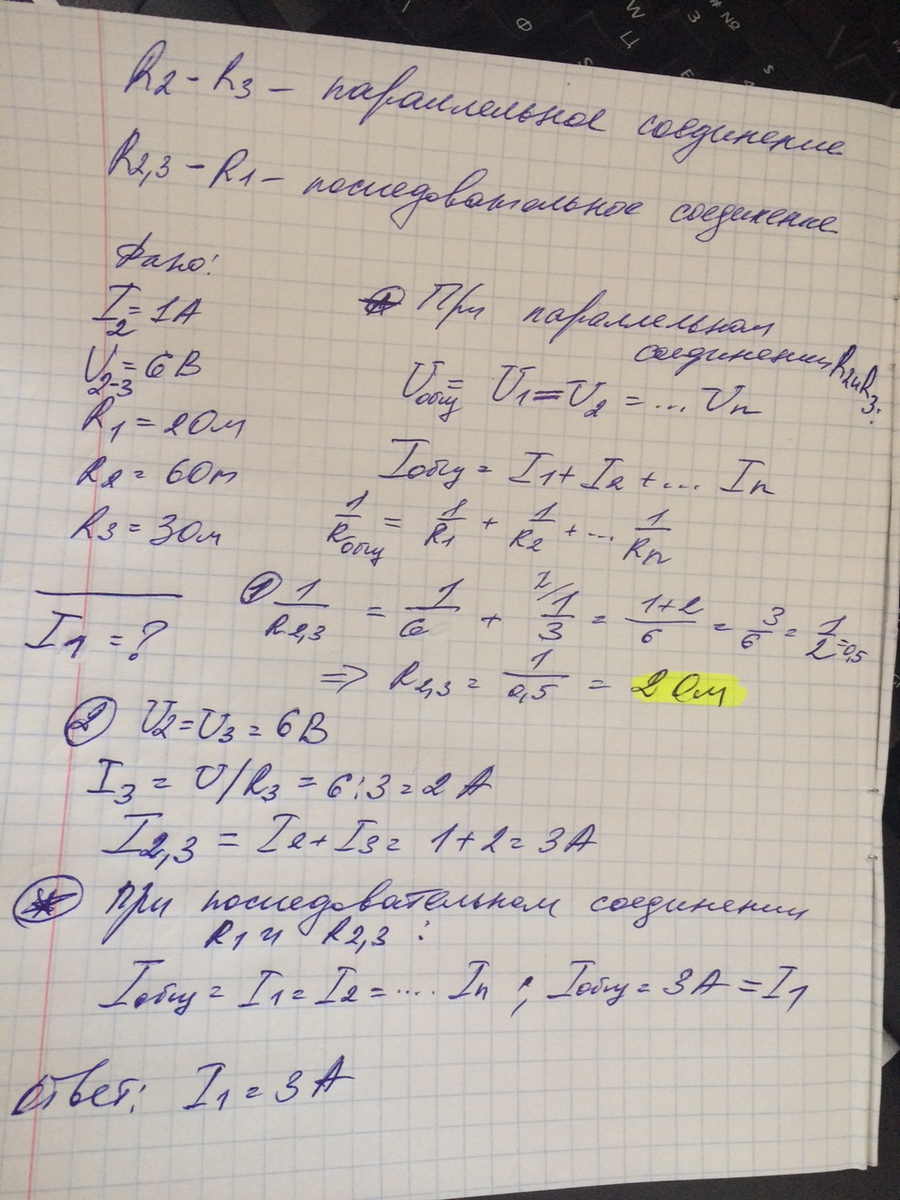 R2 - R3 - параллельное соединение
R2,3 - R1 - последовательное соединение
Дано:
I2 = 1А
U2-3 = 6В
R1 = 2Ом
R2 = 6Ом
R3 = 3Ом
I1 = ?
* При параллельном
соединении R2 и R3:
Uобщ = U1 = U2 = ... Un
Iобщ = I1 + I2 + ... In
1/Rобщ = 1/R1 + 1/R2 + ... 1/Rn
① 1/R2,3 = 1/6 + 2/ 1/3 = 1+2/6 = 3/6 = 1/2 = 0,5
=> R2,3 = 1/0,5 = 2 Ом
② U2 = U3 = 6В
I3 = U/R3 = 6:3 = 2 А
I2,3 = I2 + I3 = 1+2 = 3А
* При последовательном соединении
R1 и R2,3 :
Iобщ = I1 = I2 = .... In ; Iобщ = 3А = I1
Ответ: I1 = 3 А